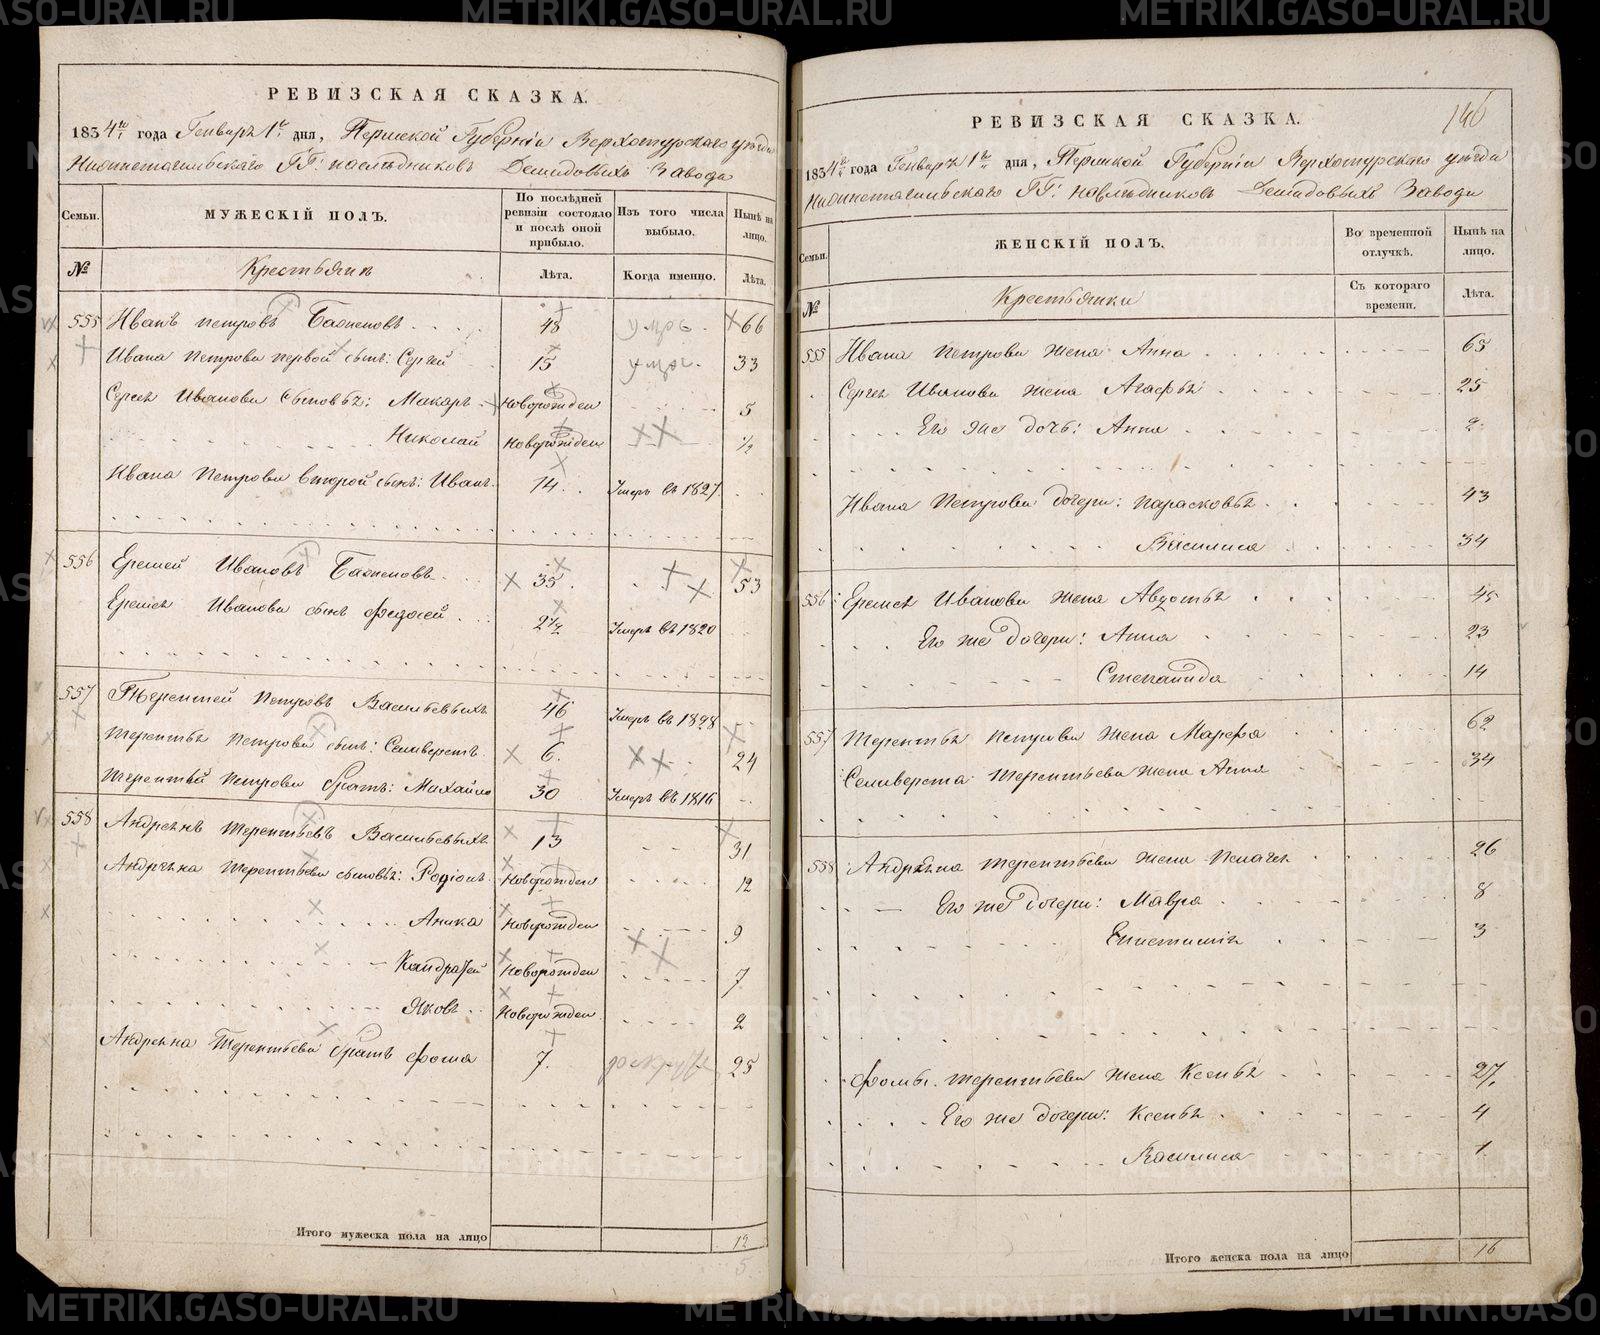 РЕВИЗСКАЯ СКАЗКА.
1834го года Генваря 1го дня, Пермской Губерніи Верхотурскаго уѣзда
Нижнетагильскаго ГГ: наслѣдниковъ Демидовыхъ Завода
Семьи. МУЖЕСКІЙ ПОЛЪ. По послѣдней ревизіи состояло и послѣ оной прибыло. Изъ того числа выбыло. Нынѣ на лицо.
№ Крестьянъ Лѣта. Когда именно. Лѣта.
555 Иванъ Петровъ Баженовъ 48 умре 66
Ивана Петрова первой сынъ: Сергѣй 15 умре 33
Сергѣя Иванова сыновья: Макаръ Новорожден 5
Николай Новорожден ½
Ивана Петрова второй сынъ: Иванъ 14 Умеръ въ 1827
556 Еремей Ивановъ Баженовъ 35 53
Еремея Иванова сынъ Федосей 2½ Умеръ въ 1820
557 Терентей Петровъ Васильевыхъ 46 Умеръ въ 1828
Терентья Петрова сынъ: Селиверстъ 6 24
Терентья Петрова братъ: Михайло 30 Умеръ въ 1816
558 Андреянъ Терентьевъ Васильевыхъ 13 31
Андреяна Терентьева сыновья: Родіонъ Новорожден 12
Аника Новорожден 9
Кандратей Новорожден 7
Яковъ Новорожден 2
Андреяна Терентьева братъ Фома 7 25
Итого мужеска пола на лицо 12
5
146
РЕВИЗСКАЯ СКАЗКА.
1834го года Генваря 1го дня, Пермской Губерніи Верхотурскаго уѣзда
Нижнетагильскаго ГГ: наслѣдниковъ Демидовыхъ Завода
Семьи. ЖЕНСКІЙ ПОЛЪ. Во временной отлучкѣ. Нынѣ на лицо.
№ Крестьянки Съ котораго времени. Лѣта.
555 Ивана Петрова жена Анна 65
Сергѣя Иванова жена Агафья 25
Его же дочь: Анна 2
Ивана Петрова дочери: Парасковья 43
Василиса 34
556 Еремея Иванова жена Авдотья 45
Его же дочери: Анна 23
Степанида 14
557 Терентья Петрова жена Марфа 62
Селиверста Терентьева жена Анна 34
558 Андреяна Терентьева жена Пелагея 26
Его же дочери: Мавра 8
Епистимія 3
Фомы Терентьева жена Ксенья 27
Его же дочери: Ксенья 4
Василиса 1
Итого женска пола на лицо 16
METRIKI.GASO-URAL.RU